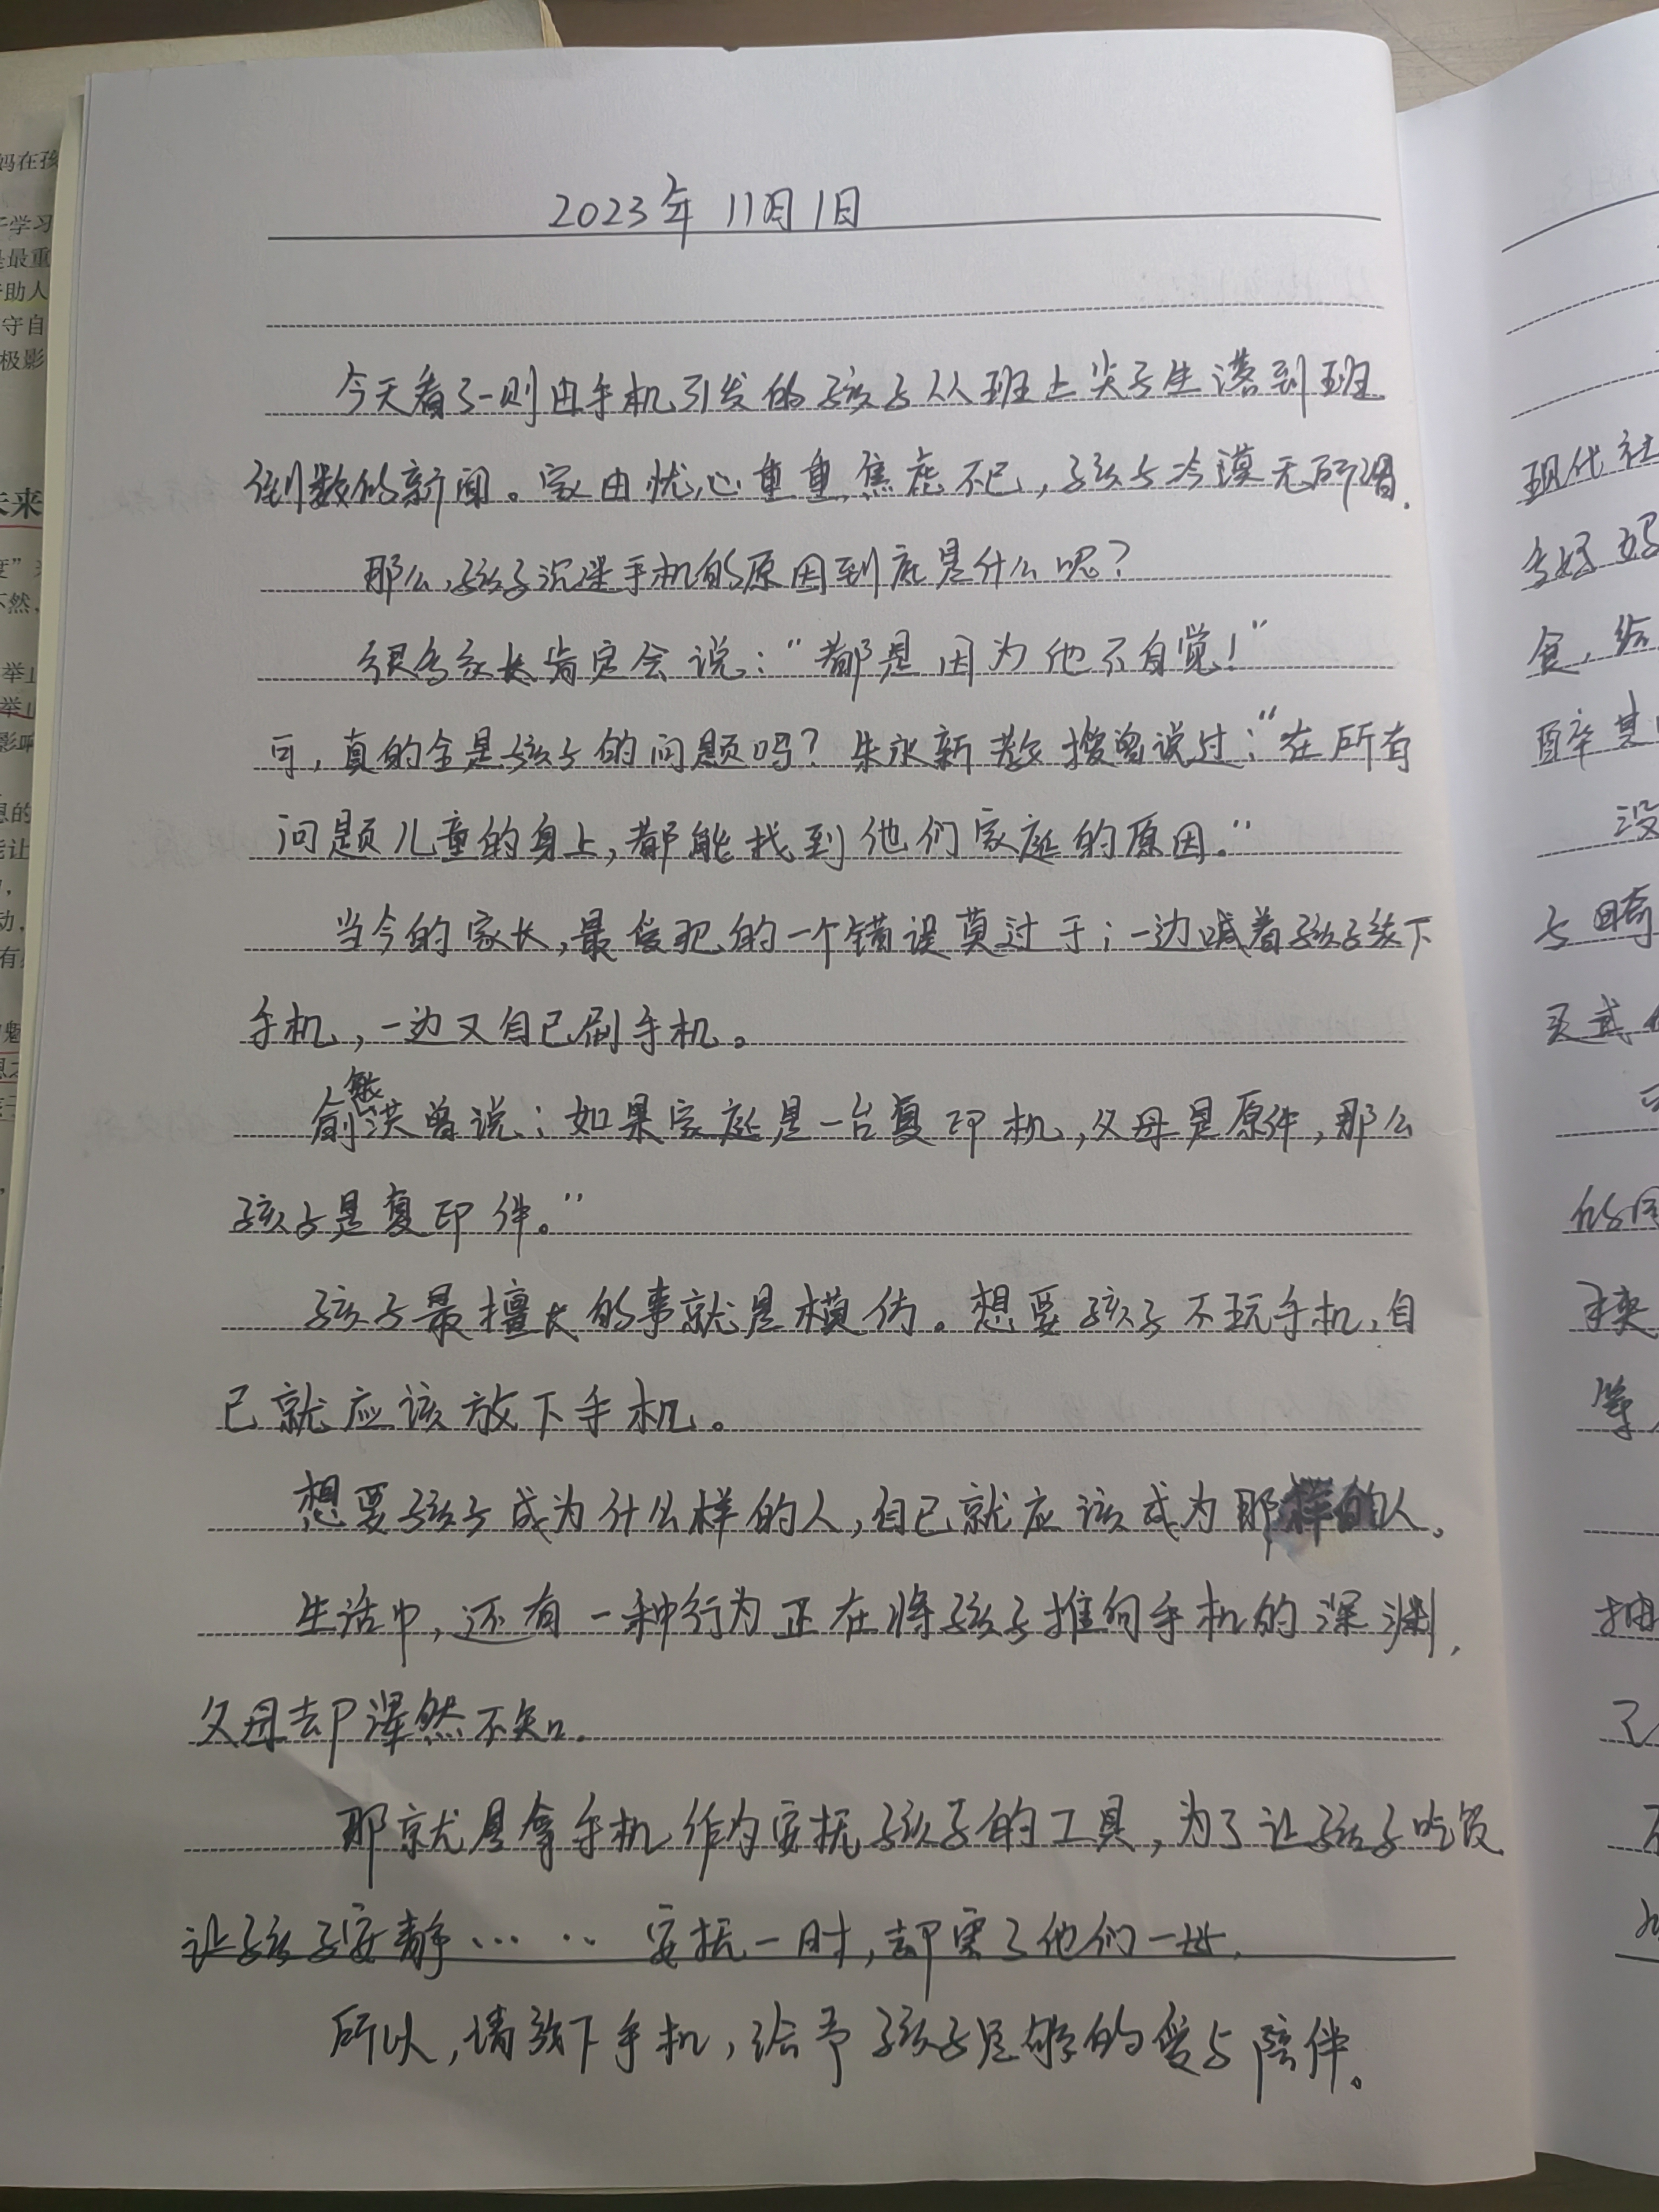 2023年 11月1日
今天看了一则由手机引发的孩子从班上尖子生落到班
倒数的新闻。家由忧心重重,焦虑不已,孩子冷漠无所谓.
那么,孩子沉迷手机的原因到底是什么呢?
很多家长肯定会说:“都是因为他不自觉!”
可,真的全是孩子的问题吗?朱永新教授曾说过:“在所有
问题儿童的身上,都能找到他们家庭的原因.”
当今的家长,最爱犯的一个错误莫过于:一边喊着孩子放下
手机,一边又自己刷手机。
俞敏洪曾说:如果家庭是一台复印机,父母是原件,那么
孩子是复印件。”
孩子最擅长的事就是模仿。想要孩子不玩手机,自
己就应该放下手机。
想要孩子成为什么样的人,自己就应该成为那样的人。
生活中,还有一种行为正在将孩子推向手机的深渊,
父母却浑然不知.
那就是拿手机作为安抚孩子的工具,为了让孩子吃饭
让孩子安静····· 安抚一时,却害了他们一世.
所以,请放下手机,给予孩子足够的爱与陪伴。
妈在孩
学习
最重
助人
守自
极影
未来
不然,
举止
影响
现代社
食,给
没
的
等